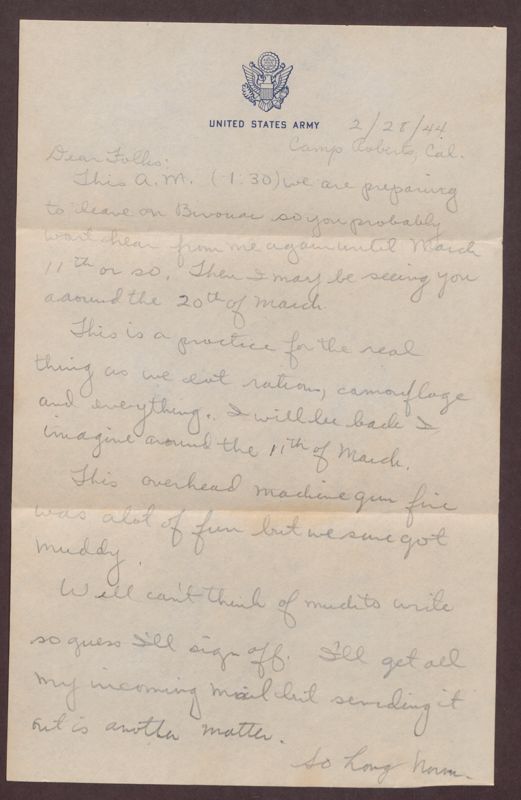 UNITED STATES ARMY
2/28/44
Camp Roberts, Cal.
Dear Folks:
This A.M. (1:30) we are preparing
to leave on Bivouac so you probably
wont hear from me again until March
11th or so. Then I may be seeing you
around the 20th of March.
This is a practice for the real
thing as we eat rations, camouflage
and everything. I will be back I
imagine around the 11th of March.
This overhead machine gun fire
was alot of fun but we sure got
muddy.
Well can't think of much to write
so guess I'll sign off. I'll get all
my incoming mail but sending it
out is another matter.
So Long Norm.